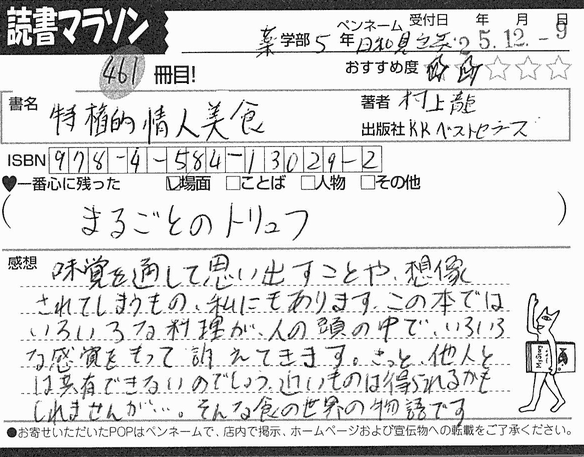 読書マラソン
薬学部5年 ペンネーム 日和見 受付日 25.12.-9 年 月 日
461冊目! おすすめ度 ★★☆☆☆
書名 特権的情人美食 著者 村上龍
出版社 KKベストセラーズ
ISBN 978-4-584-13029-2
♥一番心に残った ☑場面 □ことば □人物 □その他
(まるごとのトリュフ)
感想 味覚を通して思い出すことや、想像
されてしまうもの、私にもあります。この本では
いろいろな料理が、人の頭の中で、いろいろ
な感覚をもって訴えてきます。きっと、他人と
は共有できないのでしょう。近いものは得られるかも
しれませんが…。そんな食の世界の物語です
●お寄せいただいたPOPはペンネームで、店内で掲示、ホームページおよび宣伝物への転載をご了承ください。